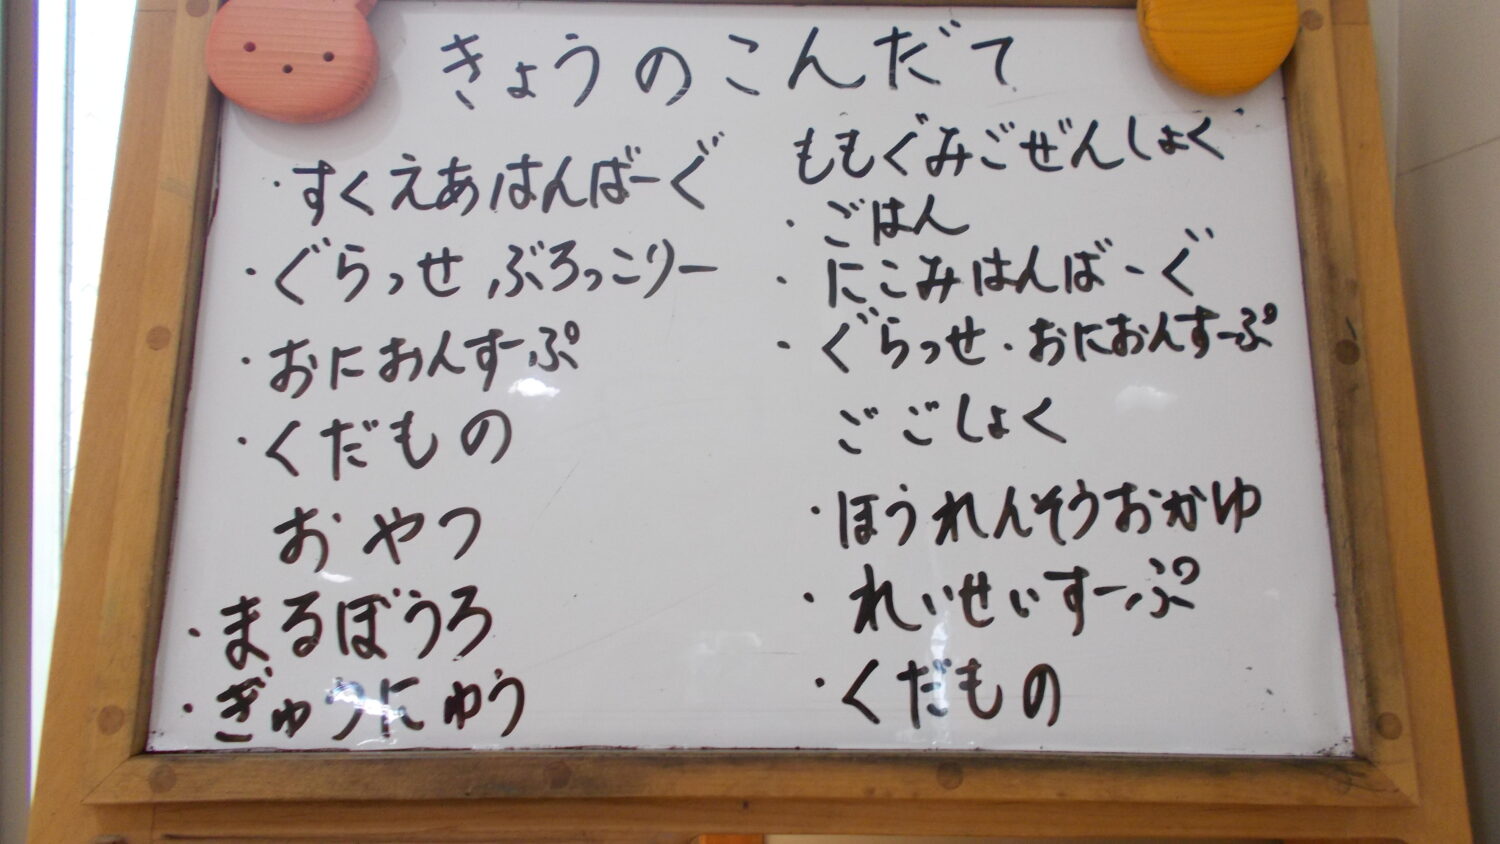 きょうのこんだて
・すくえあはんばーぐ
・ぐらっせ ぶろっこりー
・おにおんすーぷ
・くだもの
おやつ
・まるぼうろ
・ぎゅうにゅう
ももぐみごぜんしょく
・ごはん
・にこみはんばーぐ
・ぐらっせ・おにおんすーぷ
ごごしょく
・ほうれんそうおかゆ
・れいせいすーぷ
・くだもの